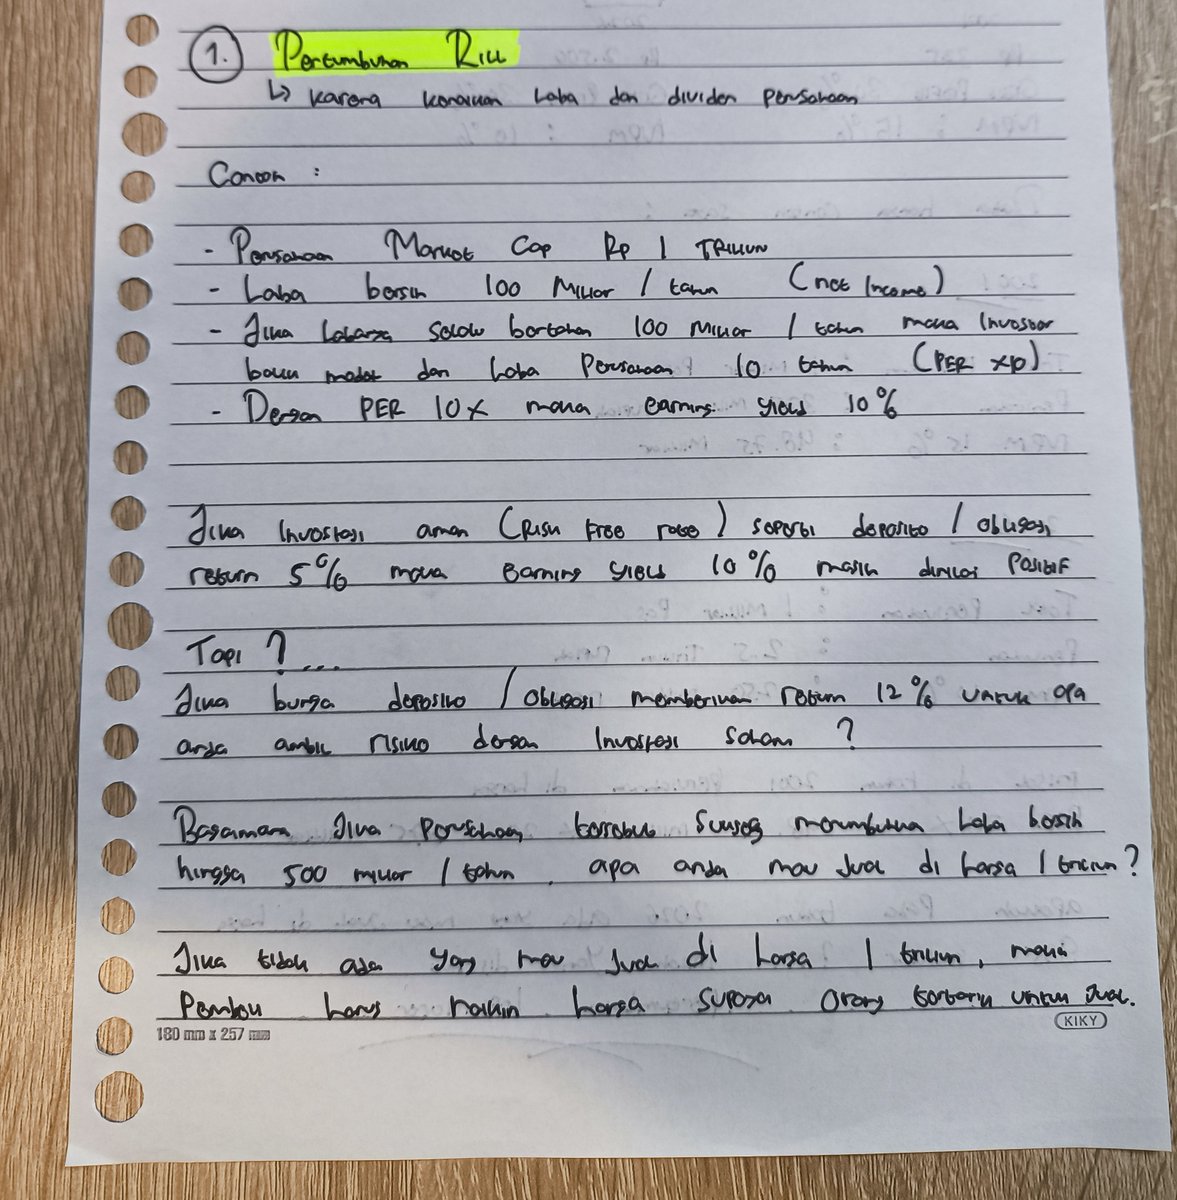 1. Pertumbuhan Riil
↳ karena kenaikan laba dan dividen perusahaan
Contoh :
- Perusahaan Market Cap Rp 1 Triliun
- Laba bersih 100 Miliar / tahun (net income)
- Jika labanya selalu bertahan 100 Miliar / tahun maka investor
balik modal dari laba perusahaan 10 tahun (PER x10)
- Dengan PER 10x maka earning yield 10%
Jika investasi aman (Risk free rate) seperti deposito / obligasi
return 5% maka earning yield 10% masih dinilai positif
Tapi ? ...
Jika bunga deposito / obligasi memberikan return 12% untuk apa
anda ambil risiko dengan investasi saham ?
Bagaimana jika perusahaan tersebut sukses menumbuhkan laba bersih
hingga 500 miliar / tahun, apa anda mau jual di harga 1 triliun ?
Jika tidak ada yang mau jual di harga 1 triliun, maka
pembeli harus naikin harga supaya orang tertarik untuk jual.
180 mm x 257 mm
KIKY